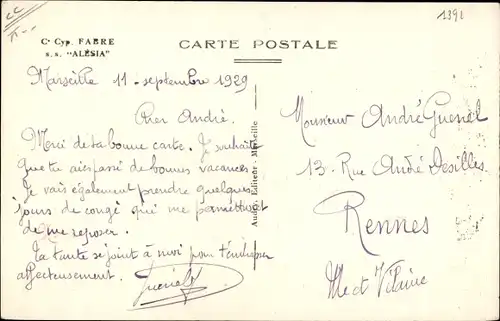 1391
Cie Cyp. FABRE
s.s. "ALÉSIA"
CARTE POSTALE
Marseille 11 - septembre 1929
Cher André.
Merci de ta bonne carte. Je souhaite
que tu aies passé de bonnes vacances.
Je vais également prendre quelques
jours de congé qui me permettront
de me reposer.
Ta tante se joint à moi pour t'embrasser
affectueusement.
Editeur - Marseille
Monsieur André Guenel
13 - Rue André Desilles
Rennes
Ille et Vilaine